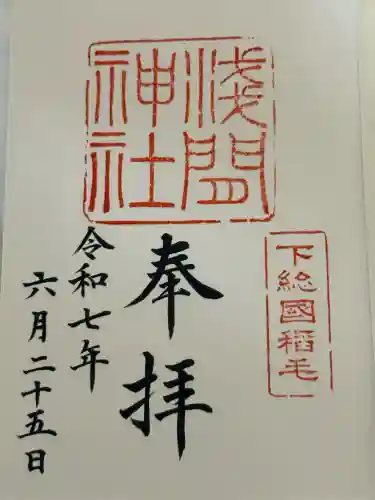 浅間
神社
下総國稲毛
奉拝
令和七年
六月二十五日